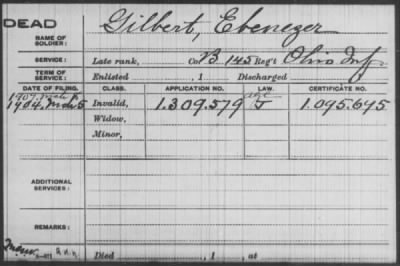 DEAD
Gilbert, Ebenezer
NAME OF SOLDIER:
SERVICE: Late rank, Co. B 145 Reg't Ohio Inf
TERM OF SERVICE: Enlisted , 1 Discharged
DATE OF FILING. CLASS. APPLICATION NO. LAW. CERTIFICATE NO.
1907
1904. Mch 5 Invalid, 1.309.579 1.095.695
Widow,
Minor,
ADDITIONAL SERVICES:
REMARKS:
Died , 1 , at